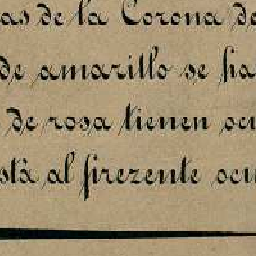 as de la Corona de
de amarillo se ha
de rosa tienen ocu
stà al prezente ocu